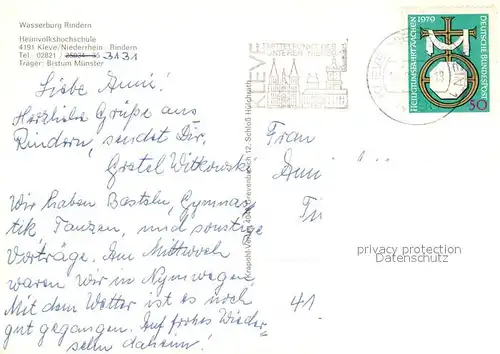 Wasserburg Rindern
Heimvolkshochschule
4191 Kleve/Niederrhein Rindern
Tel. 02821 3131
Träger: Bistum Münster
Liebe Änni!
Herzliche Grüße aus
Rindern, sendet Dir,
Gretel Witkowski
Wir haben Basteln, Gymnas-
tik, Tanzen, und sonstige
Vorträge. Am Mittwoch
waren wir in Nymwegen.
Mit dem Wetter ist es noch
gut gegangen. Auf frohes Wieder
sehn daheim!
Krapohl-Verlag 4048 Grevenbroich 12, Schloß Hülchrath
KLEVE
MITTELPUNKT DES
UNTEREN
HEILIGTUMSFAHRT AACHEN 1979
DEUTSCHE BUNDESPOST
50
Frau
41
privacy protection
Datenschutz